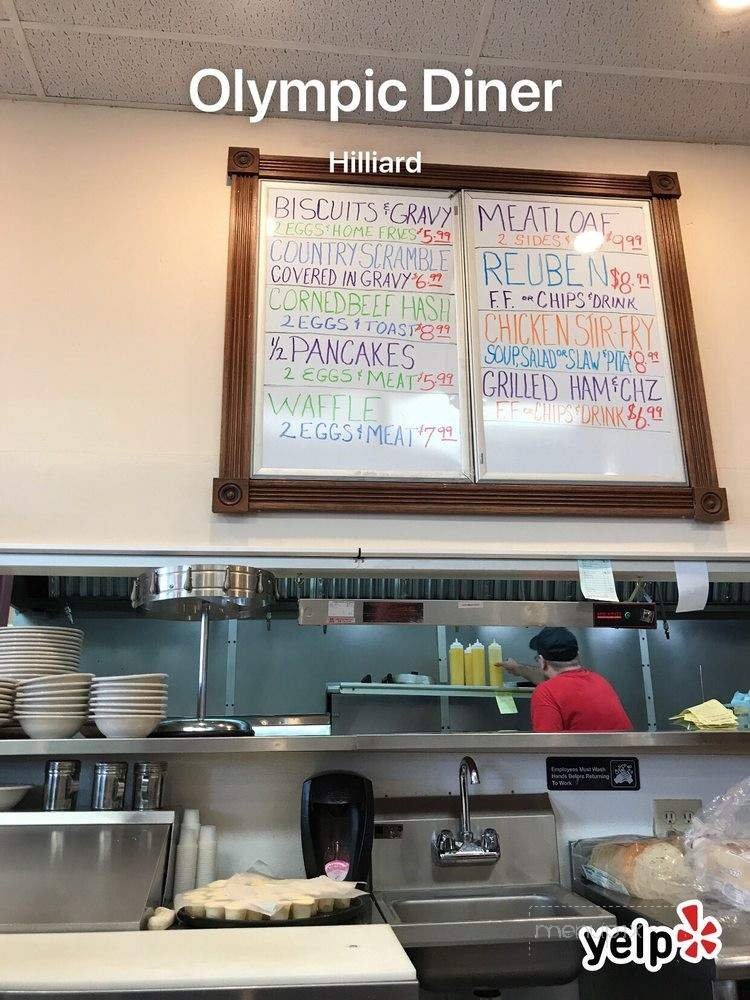 Olympic Diner
Hilliard
BISCUITS & GRAVY
2 EGGS & HOME FRIES $5.99
COUNTRY SCRAMBLE
COVERED IN GRAVY $6.99
CORNED BEEF HASH
2 EGGS & TOAST $8.99
1/2 PANCAKES
2 EGGS & MEAT $5.99
WAFFLE
2 EGGS & MEAT $7.99
MEATLOAF
2 SIDES $9.99
REUBEN $8.99
F.F. OR CHIPS & DRINK
CHICKEN STIR FRY
SOUP, SALAD OR SLAW & PITA $8.99
GRILLED HAM & CHZ
F.F. OR CHIPS & DRINK $6.99
Employees Must Wash
Hands Before Returning
To Work
yelp